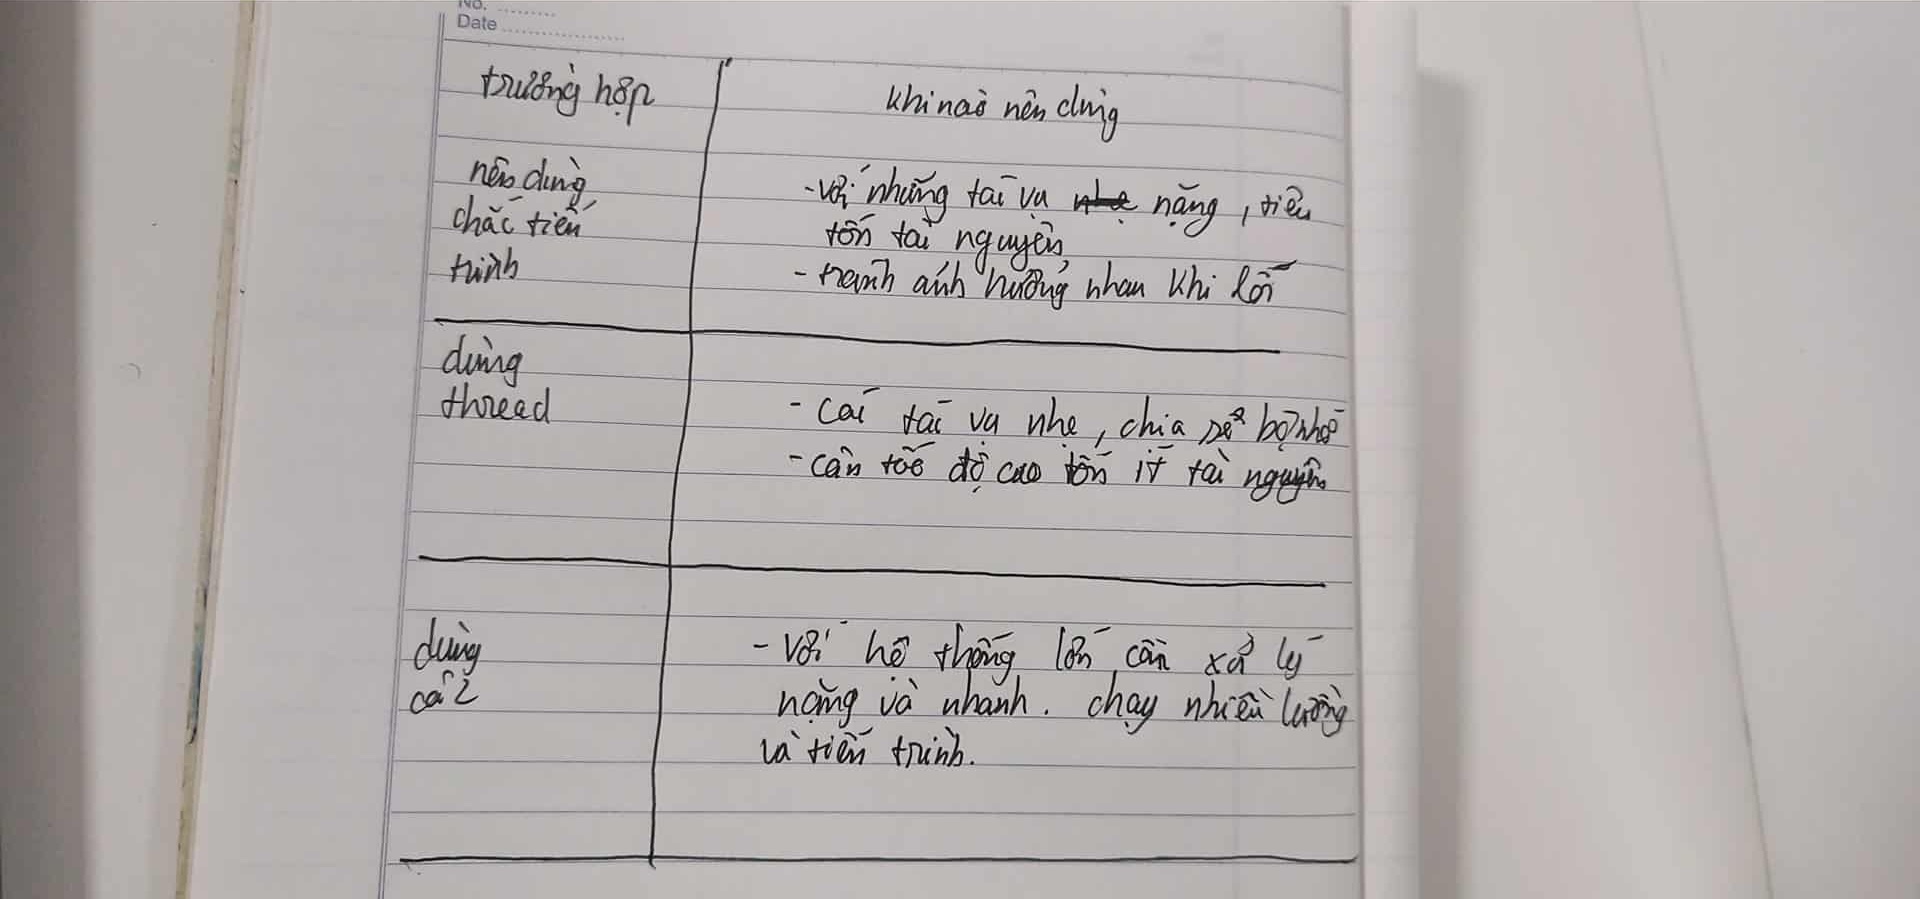 No. ........
Date ..................
trường hợp
khi nào nên dùng
nên dùng
chắc tiến
trình
- với những tài vụ nhẹ nặng, tiêu
tốn tài nguyên
- tranh ảnh hưởng nhau khi lỗi
dùng
thread
- cái tài vụ nhẹ, chia sẻ bộ nhớ
- cần tốc độ cao tốn ít tài nguyên
dùng
cả 2
- Với hệ thống lớn cần xử lý
nặng và nhanh. chạy nhiều luồng
và tiến trình.